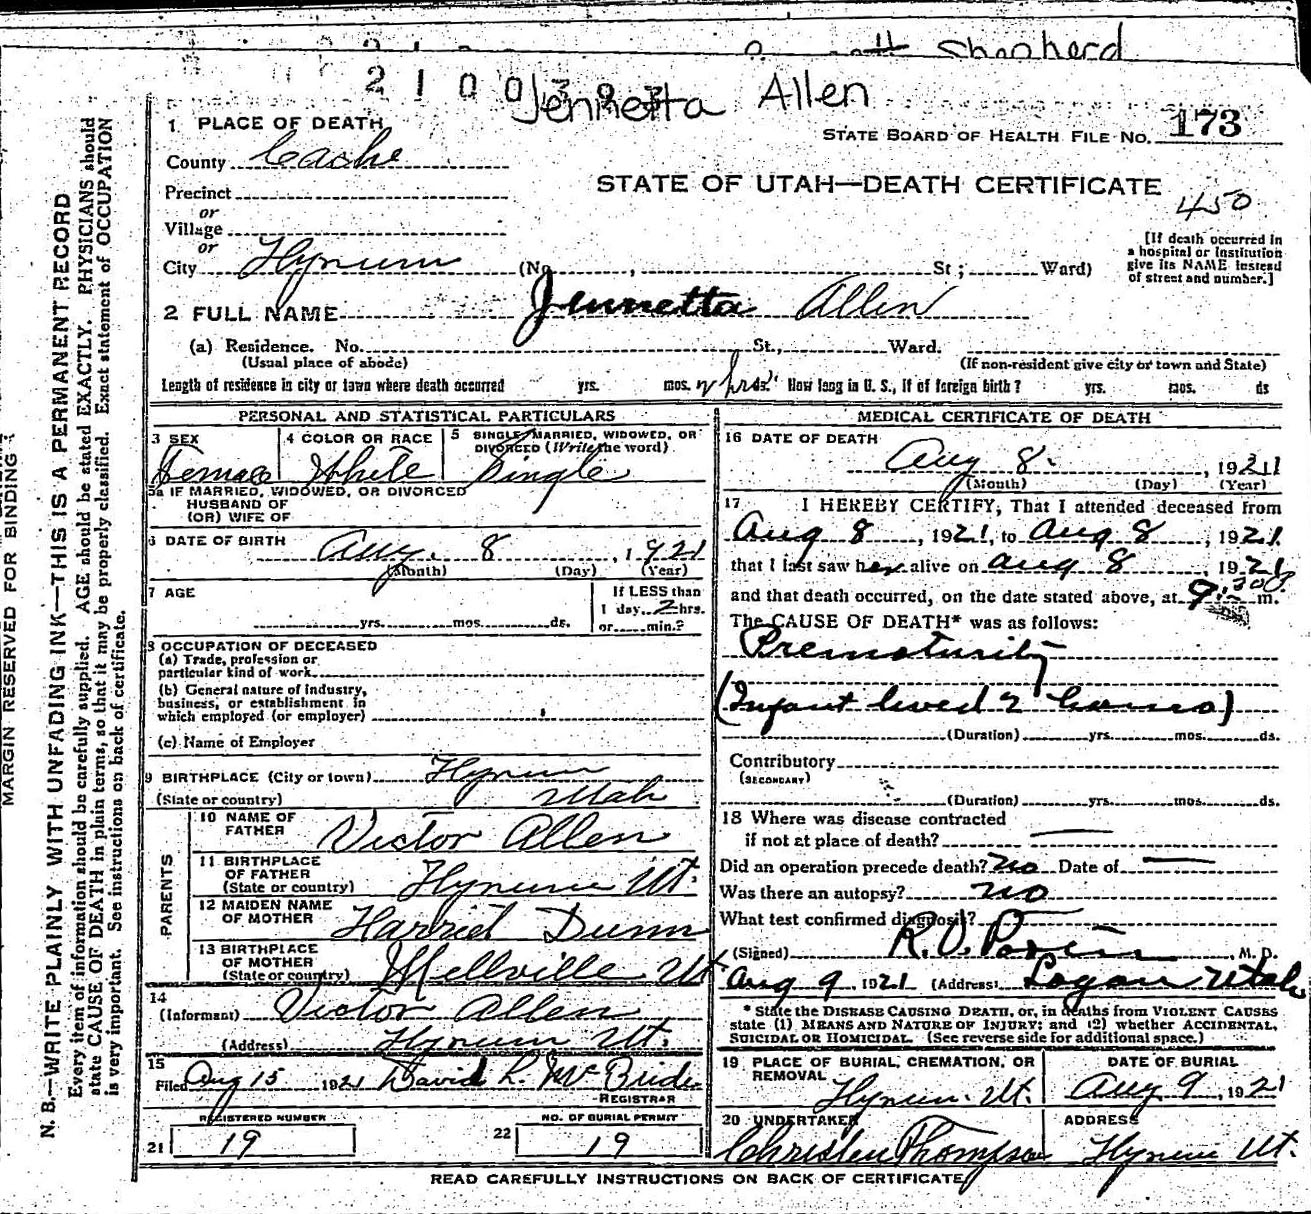 Shepherd
2 1 0 0 3 9 3
Jennetta Allen
STATE BOARD OF HEALTH FILE NO. 173
1 PLACE OF DEATH
County Cache
STATE OF UTAH—DEATH CERTIFICATE
450
Precinct
or
Village
or
City Hyrum (No. , St ; Ward)
[If death occurred in
a hospital or institution
give its NAME instead
of street and number.]
2 FULL NAME Jennetta Allen
(a) Residence. No. St., Ward.
(Usual place of abode) (If non-resident give city or town and State)
Length of residence in city or town where death occurred yrs. mos. 2 hrs. How long in U. S., if of foreign birth? yrs. mos. ds
PERSONAL AND STATISTICAL PARTICULARS
3 SEX Female
4 COLOR OR RACE White
5 SINGLE, MARRIED, WIDOWED, OR
DIVORCED (Write the word)
Single
5a IF MARRIED, WIDOWED, OR DIVORCED
HUSBAND OF
(OR) WIFE OF
6 DATE OF BIRTH Aug. 8, 1921
(Month) (Day) (Year)
7 AGE
yrs. mos. ds.
If LESS than
1 day 2 hrs.
or min.?
8 OCCUPATION OF DECEASED
(a) Trade, profession or
particular kind of work
(b) General nature of industry,
business, or establishment in
which employed (or employer)
(c) Name of Employer
9 BIRTHPLACE (City or town) Hyrum
(State or country) Utah
PARENTS
10 NAME OF
FATHER Victor Allen
11 BIRTHPLACE
OF FATHER
(State or country) Hyrum Ut.
12 MAIDEN NAME
OF MOTHER Harriet Dunn
13 BIRTHPLACE
OF MOTHER
(State or country) Mellville Ut
14
(Informant) Victor Allen
(Address) Hyrum Ut.
15
Filed Aug 15 1921 David L. McBride
REGISTRAR
REGISTERED NUMBER NO. OF BURIAL PERMIT
21 19 22 19
MEDICAL CERTIFICATE OF DEATH
16 DATE OF DEATH
Aug 8. , 1921
(Month) (Day) (Year)
17 I HEREBY CERTIFY, That I attended deceased from
Aug 8 , 1921, to Aug 8 , 1921
that I last saw her alive on Aug 8 , 1921
and that death occurred, on the date stated above, at 9:30 P. m.
The CAUSE OF DEATH* was as follows:
Prematurity
(Infant lived 2 hours)
(Duration) yrs. mos. ds.
Contributory
(SECONDARY)
(Duration) yrs. mos. ds.
18 Where was disease contracted
if not at place of death? —
Did an operation precede death? No Date of —
Was there an autopsy? No
What test confirmed diagnosis?
(Signed) R. O. , M. D.
Aug 9 1921 (Address) Logan Utah
* State the DISEASE CAUSING DEATH, or, in deaths from VIOLENT CAUSES
state (1) MEANS AND NATURE OF INJURY; and (2) whether ACCIDENTAL,
SUICIDAL OR HOMICIDAL. (See reverse side for additional space.)
19 PLACE OF BURIAL, CREMATION, OR
REMOVAL
Hyrum. Ut.
DATE OF BURIAL
Aug 9, 1921
20 UNDERTAKER
Christen Thompson
ADDRESS
Hyrum Ut.
READ CAREFULLY INSTRUCTIONS ON BACK OF CERTIFICATE
MARGIN RESERVED FOR BINDING
N. B.—WRITE PLAINLY WITH UNFADING INK—THIS IS A PERMANENT RECORD
Every item of information should be carefully supplied. AGE should be stated EXACTLY. PHYSICIANS should
state CAUSE OF DEATH in plain terms, so that it may be properly classified. Exact statement of OCCUPATION
is very important. See instructions on back of certificate.